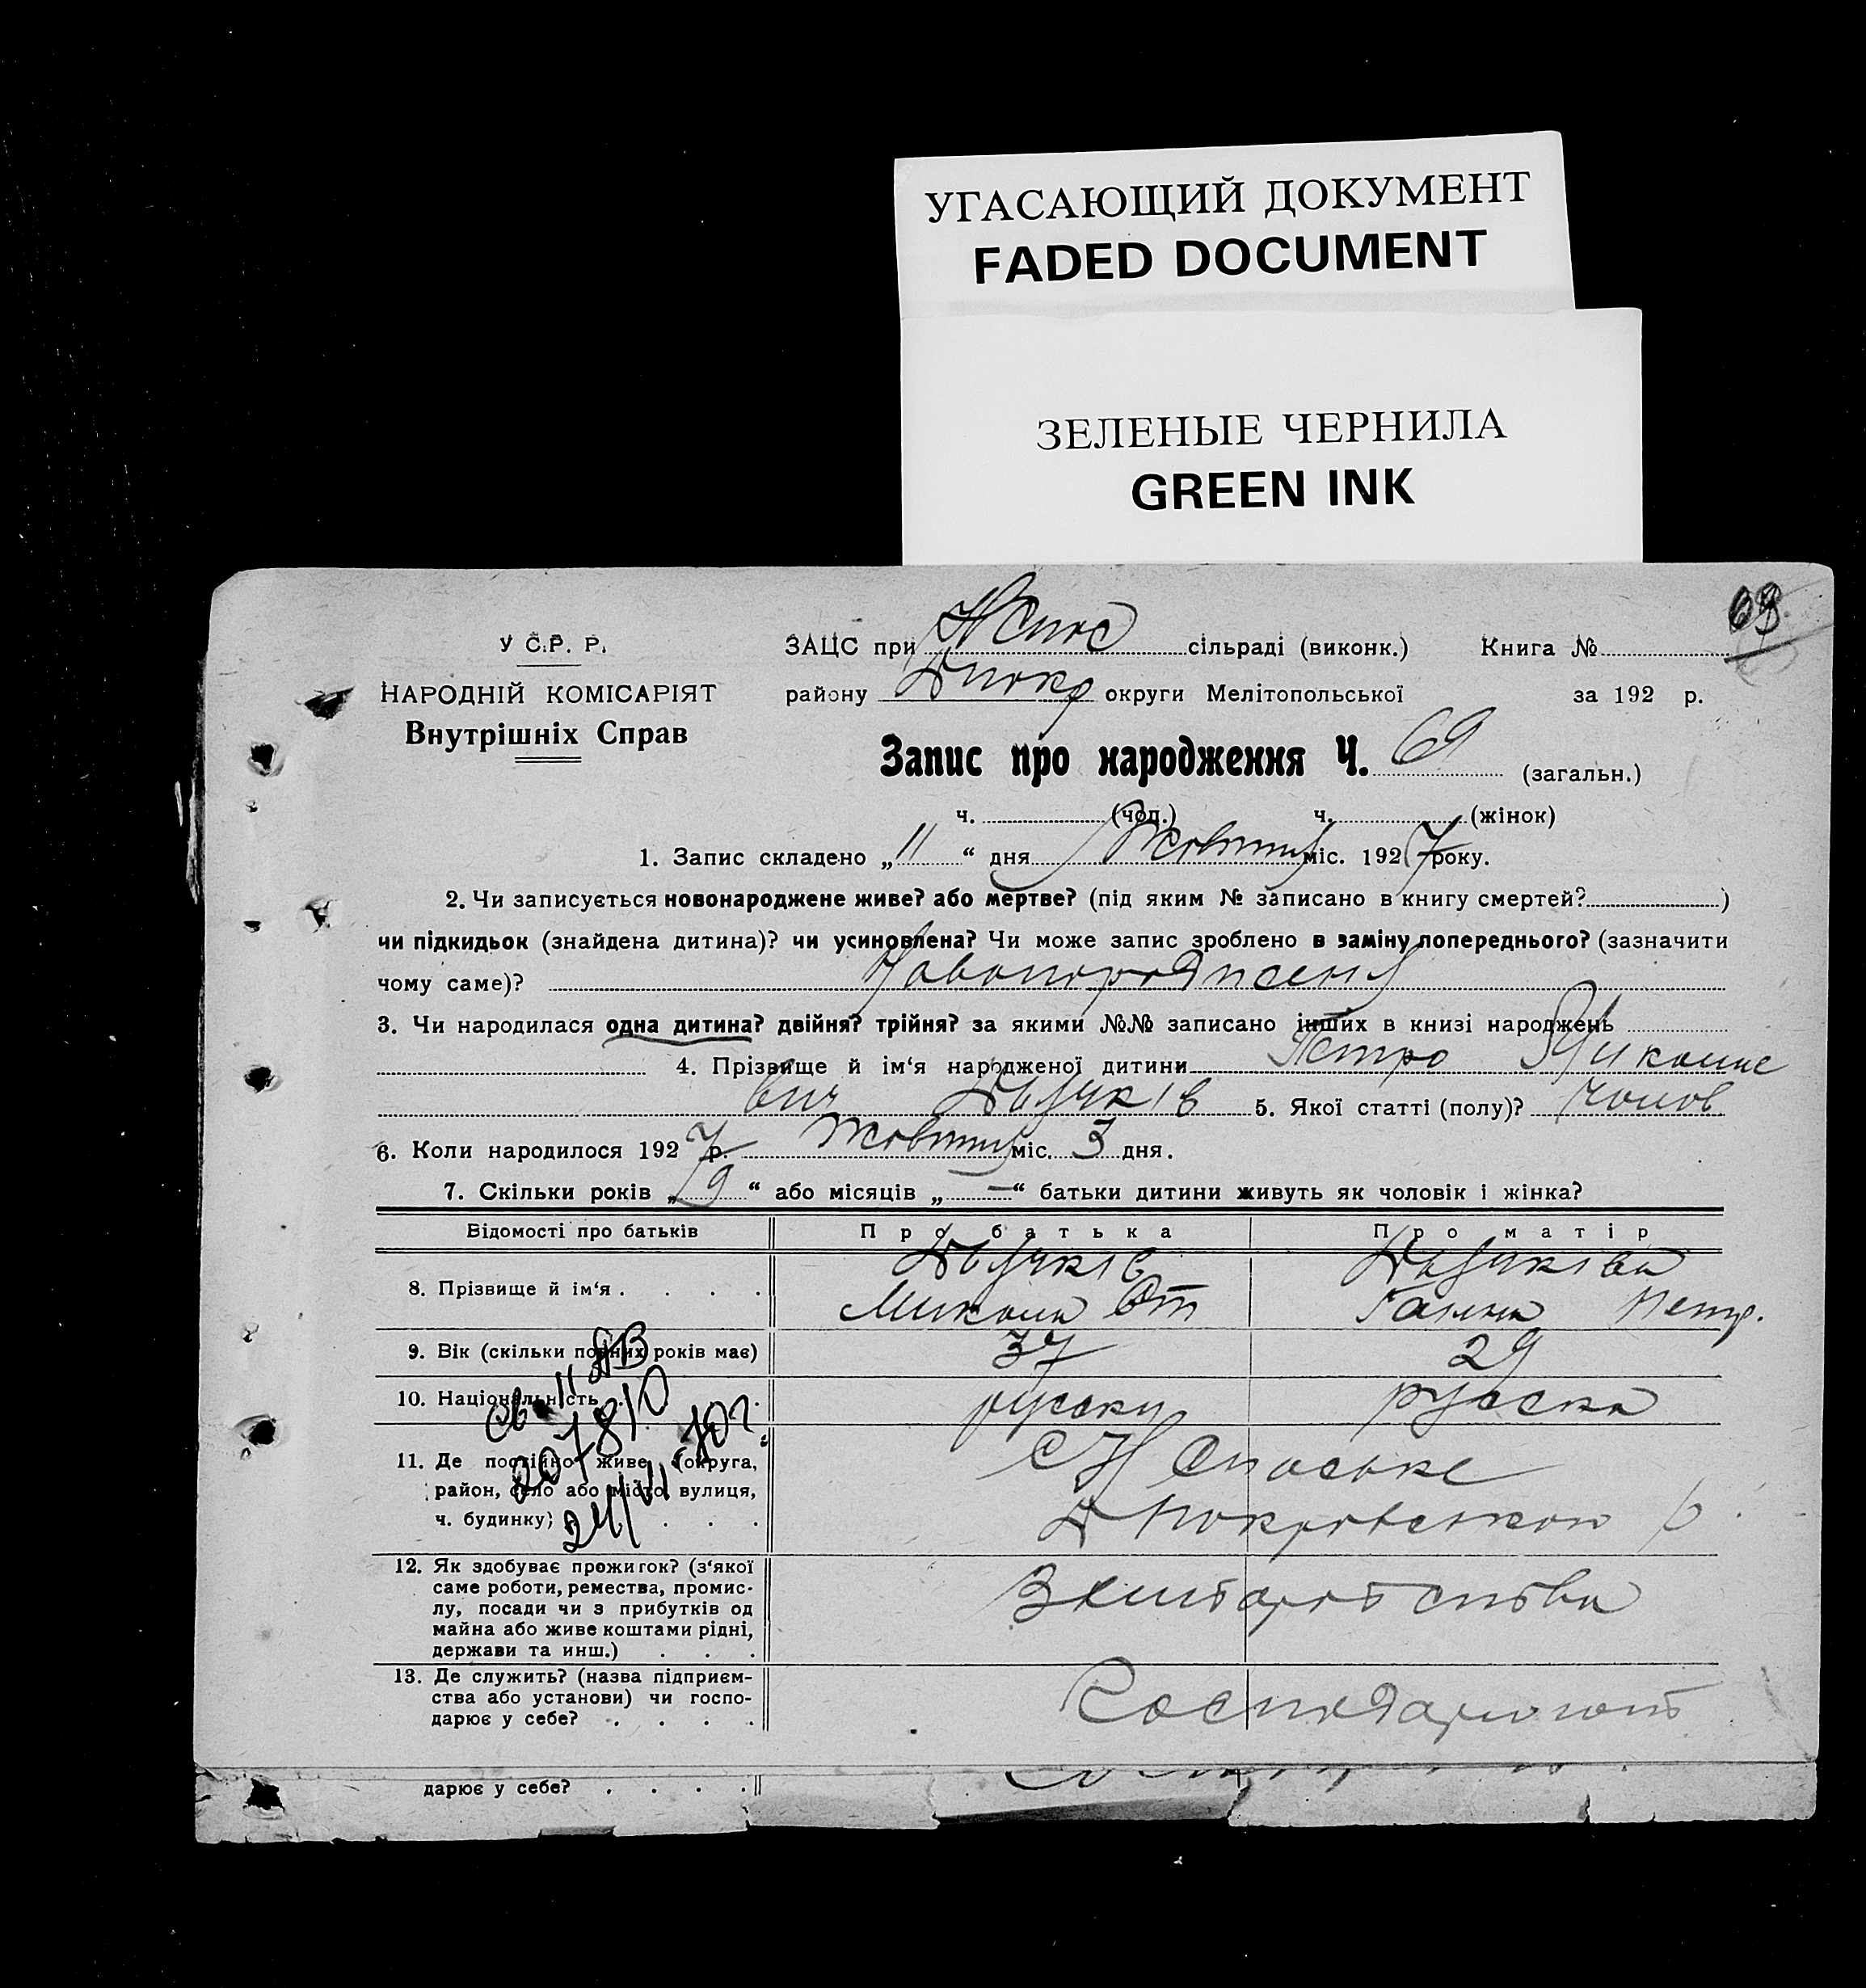 УГАСАЮЩИЙ ДОКУМЕНТ
FADED DOCUMENT
ЗЕЛЕНЫЕ ЧЕРНИЛА
GREEN INK
69
У С.Р. Р.
ЗАЦС при Н Спас сільраді (виконк.) Книга №
НАРОДНІЙ КОМІСАРІЯТ
району округи Мелітопольської за 192 р.
Внутрішніх Справ
Запис про народження Ч. 69 (загальн.)
ч. (чол.) ч. (жінок)
1. Запис складено „11“ дня Жовтня міс. 1927 року.
2. Чи записується новонароджене живе? або мертве? (під яким № записано в книгу смертей? )
чи підкидьок (знайдена дитина)? чи усиновлена? Чи може запис зроблено в заміну попереднього? (зазначити
чому саме)?
3. Чи народилася одна дитина? двійня? трійня? за якими №№ записано інших в книзі народжень
4. Прізвище й ім‘я народженої дитини Петро Миколає
вич 5. Якої статті (полу)? чолов
6. Коли народилося 1927 р. Жовтня міс. 3 дня.
7. Скільки років „9“ або місяців „—“ батьки дитини живуть як чоловік і жінка?
Відомості про батьків Про батька Про матір
8. Прізвище й ім‘я . . . .
Микола Ганна Петр.
9. Вік (скільки повних років має) 37 29
10. Національність . . . руский русска
11. Де постійно живе (округа,
район, село або місто, вулиця,
ч. будинку) . . . .
С Н Спаське
Покровського р.
св. II ЯВ
207810
24/VI 70г.
12. Як здобуває прожиток? (з‘якої
саме роботи, ремества, промис-
лу, посади чи з прибутків од
майна або живе коштами рідні,
держави та инш.) . . .
13. Де служить? (назва підприєм-
ства або установи) чи госпо-
дарює у себе? . . . .
Господарюють
дарює у себе? . . . .